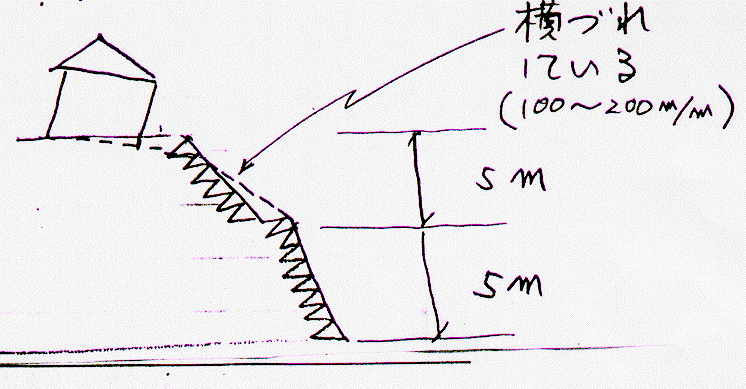 横づれ
している
(100～200m/m)
5m
5m